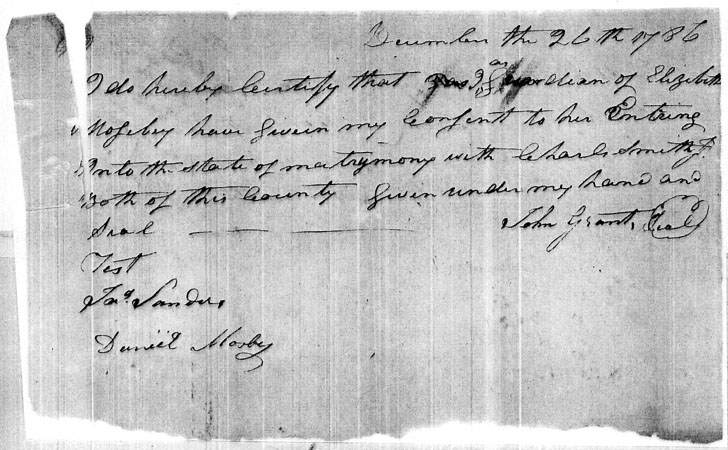 December the 26th 1786
I do hereby Certify that I as Guardian of Elizabeth
Mosebey have Given my Consent to her Entring
Into the state of matrymony with Charls Smith Jr
Both of this County Given under my hand and
Seal — — — John Grant, Seal
Test
Jas Sanders
Daniel Mosby